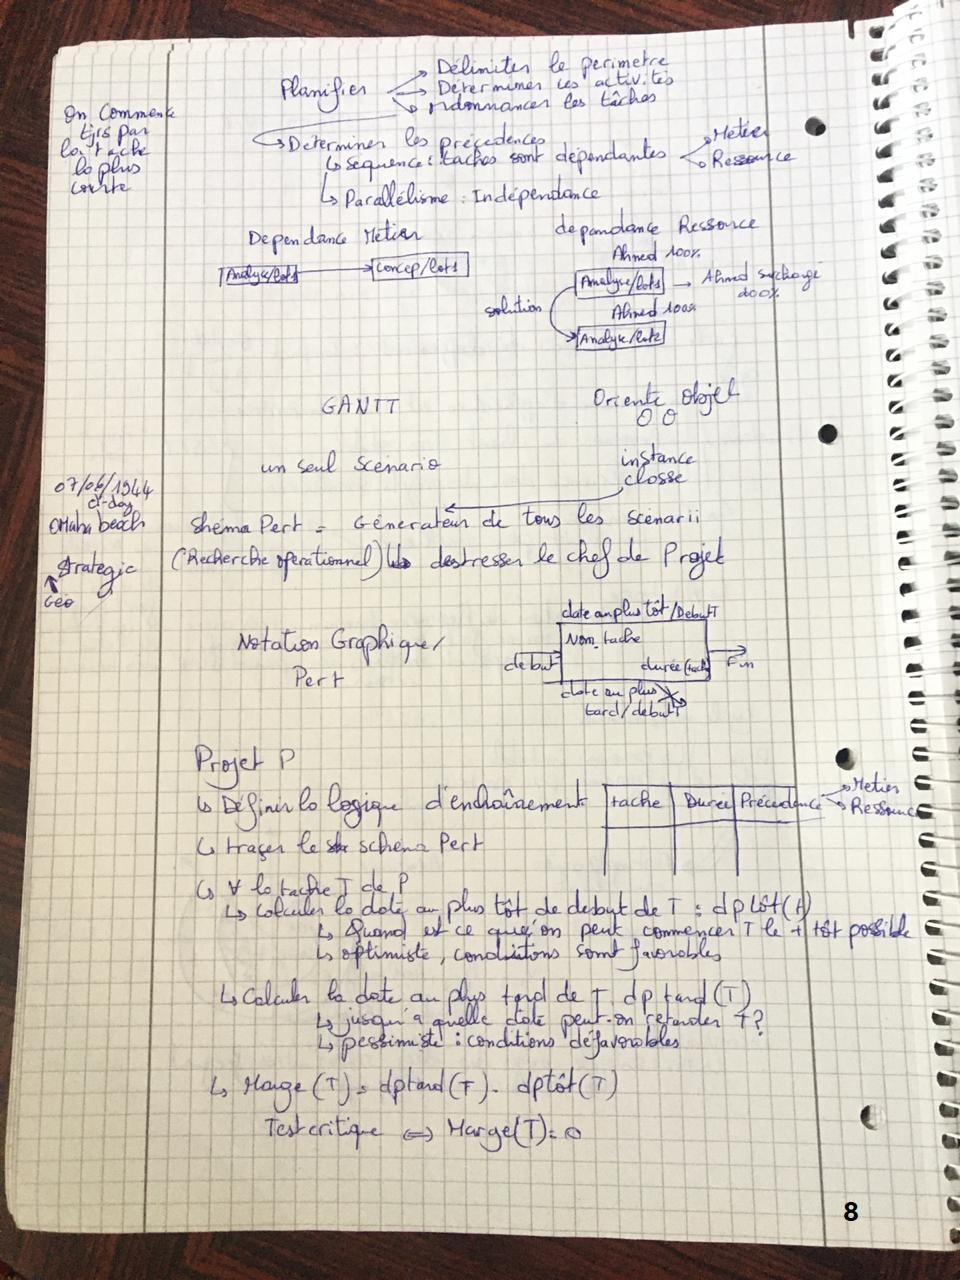 Planifier
Délimiter le périmetre
Déterminer les activités
ordonnancer les tâches
On Commence
tjrs par
la tache
la plus
courte
Déterminer les précédences
séquence : taches sont dépendantes
Métier
Ressource
Parallélisme : Indépendance
Dependance Métier
dépendance Ressource
Analyse/lot1
Concep/lot1
Ahmed 100%
Analyse/lot1
Ahmed surchargé
200%
solution
Ahmed 100%
Analyse/lot2
GANTT
Orienté objet
OO
un seul scénario
instance
classe
07/06/1944
d-day
Omaha beach
Strategic
Géo
Shéma Pert = Générateur de tous les scénarii
(Recherche opérationnel) destresser le chef de Projet
Notation Graphique/
Pert
date au plus tôt/Debut T
Nom tache
debut
durée(tach)
Fin
date au plus
tard/debut T
Projet P
Définir la logique d'enchaînement
tache
Durée
Précédence
Metier
Ressource
traçer le schéma Pert
∀ la tache T de P
Calculer la date au plus tôt de debut de T : dptôt(t)
Quand est ce qu'on peut commencer T le + tôt possible
optimiste, conditions sont favorables
Calculer la date au plus tard de T dptard(T)
jusqu'a quelle date peut-on retarder T?
pessimiste : conditions défavorables
Marge(T) = dptard(T) - dptôt(T)
Test critique ⇔ Marge(T) = 0
8